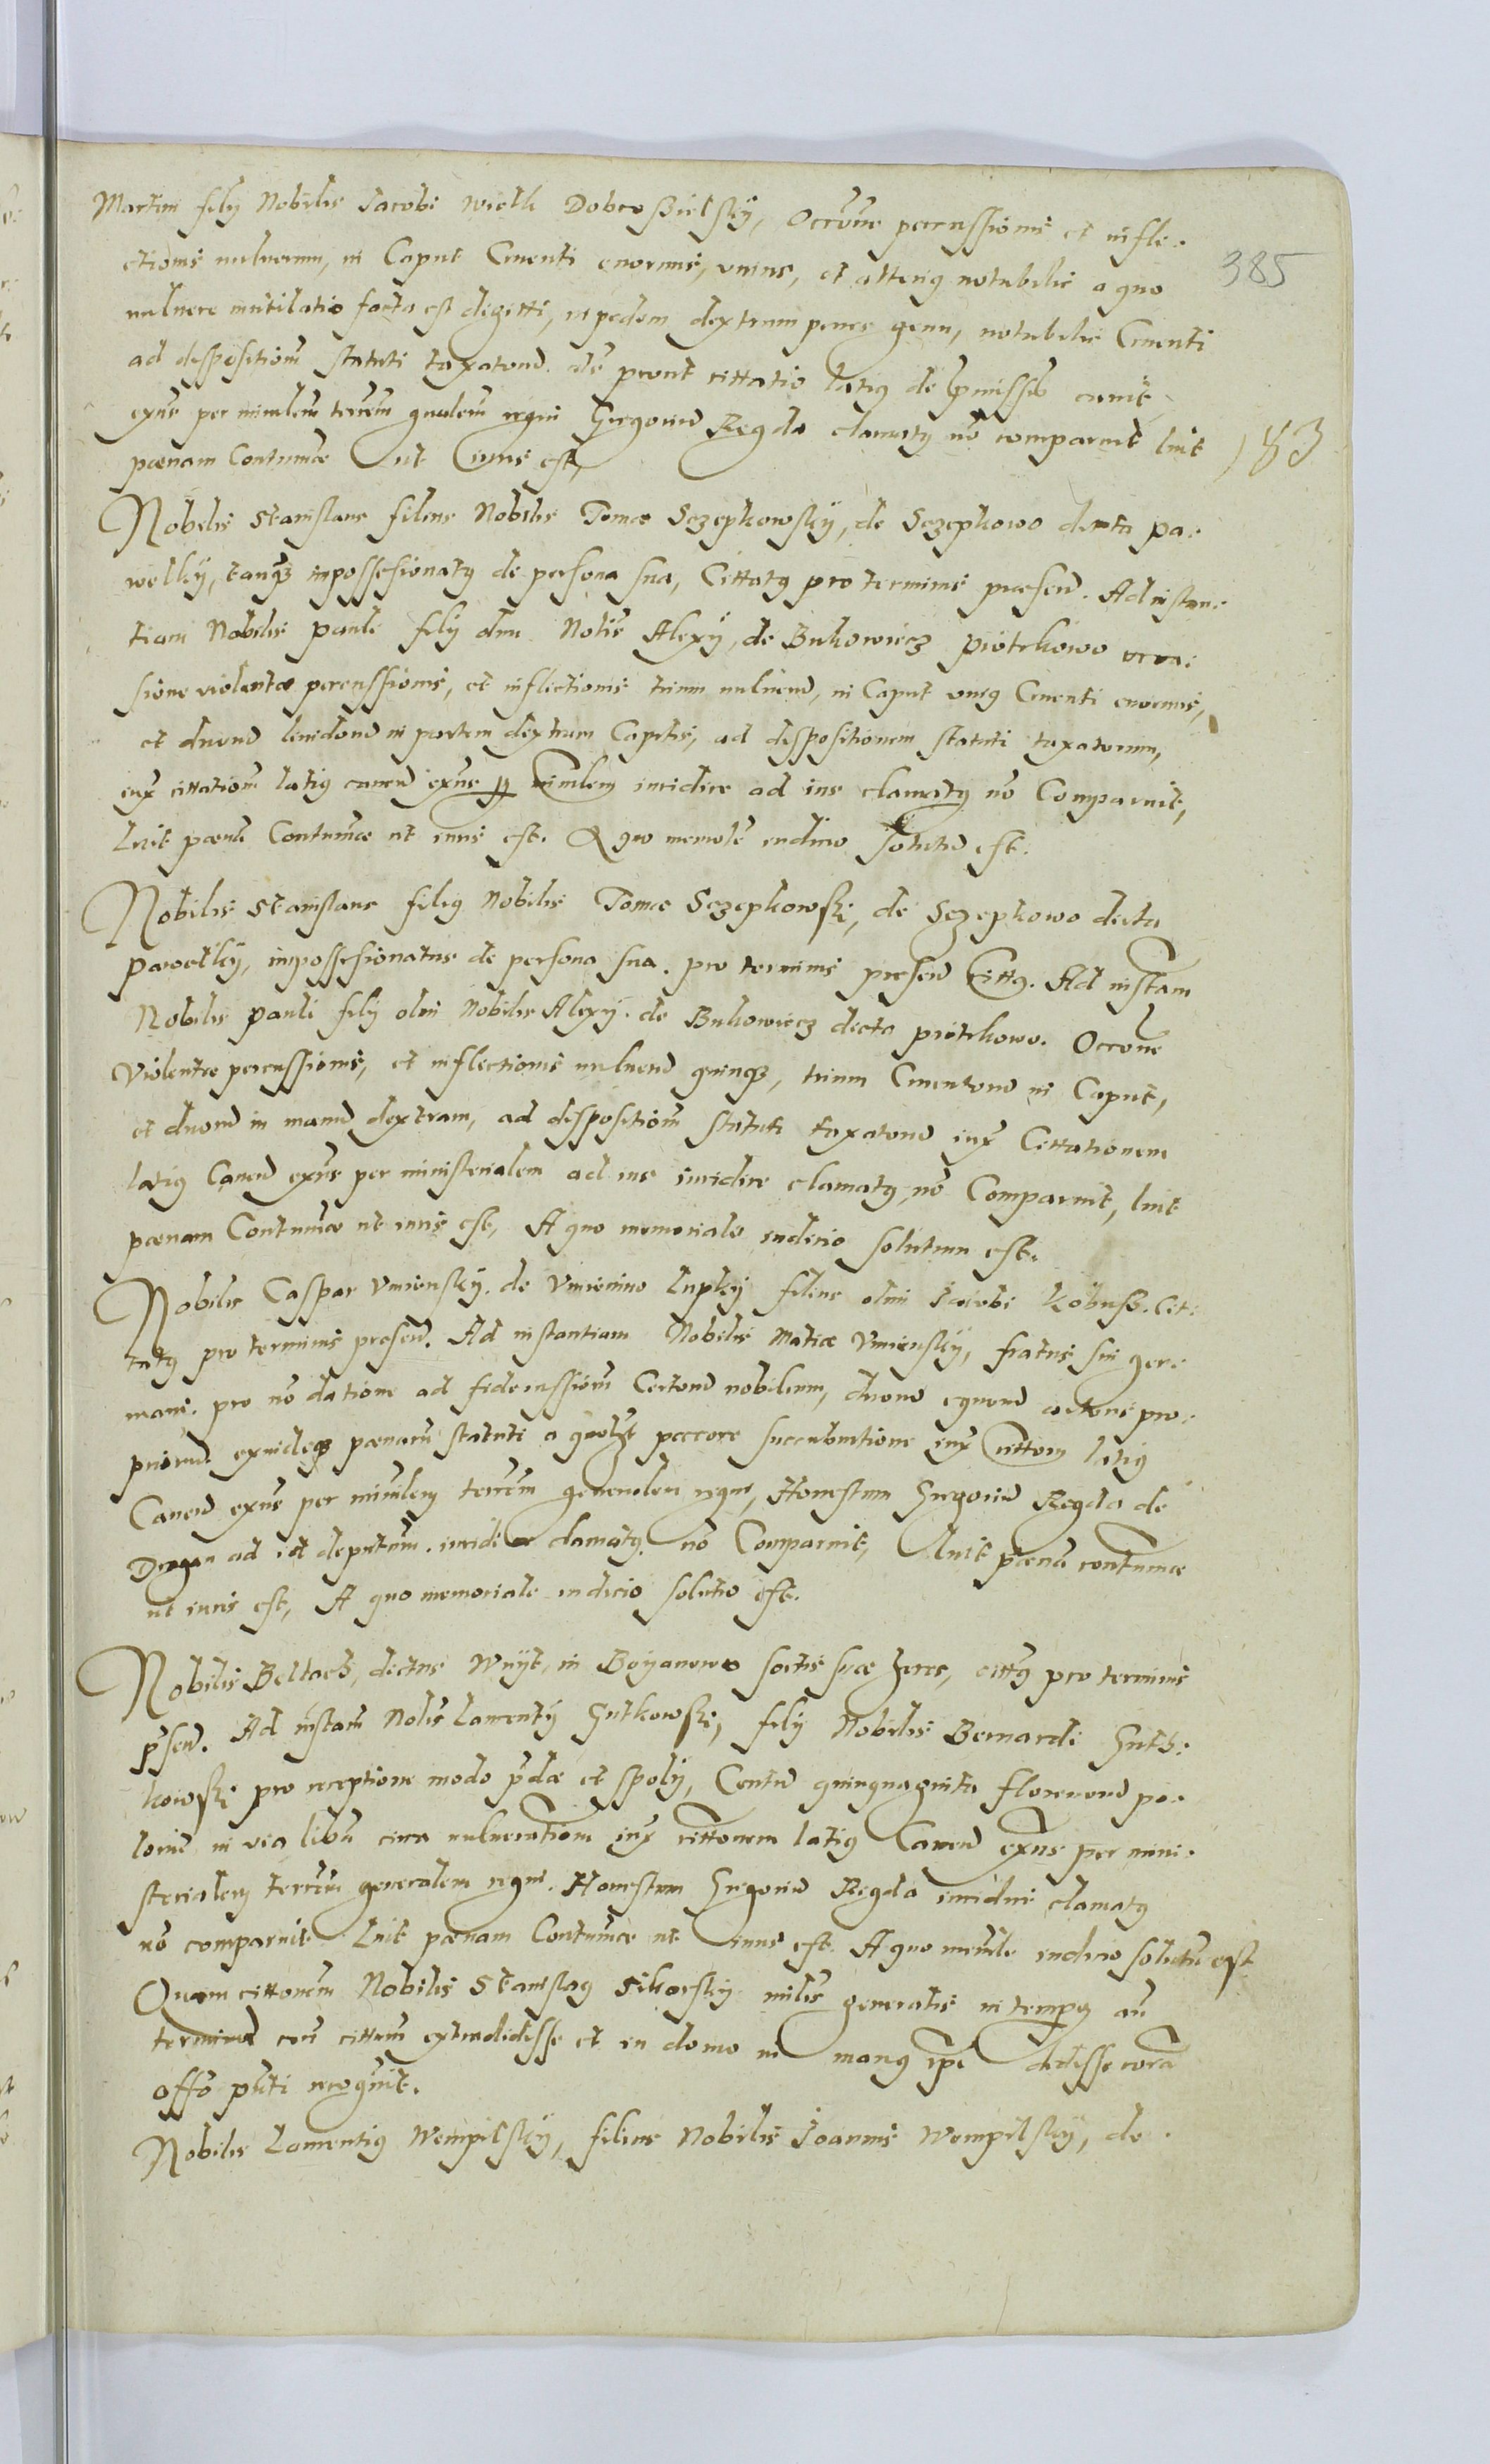 Martini filÿ Nobilis Jacobi wielk Dobrosÿelskÿ, Occone percussionis et infli-
ctionis vulnerum, in Caput Cruenti enormis, unius, et alterius notabilis a quo
385
vulnere mutilatio facta est degitti, in pedem dextrum penes genu, notabilis Cruenti
ad dispositiom statuti taxatorum. prout cittatio latius de pmissis canit,
exns per minilem terrem gnalem regni Gregorium Regda clamatus no comparuit luit
183
pœnam Contumae ut iuris est,
Nobilis Stanislaus filius Nobilis Tomæ Sczepkowskÿ, de Sczepkowo dicta pa-
welkÿ, tanqz inpossesionatus de persona sua, Cittatus pro terminis præsen. Ad instan-
tiam Nobilis pauli filÿ olim Nolis Alexÿ, de Bukowiecz piotrkowo
sione violentæ percussionis, et inflictionis trium vulneru, in Caput unius Cruenti enormis,
et duoru liuidoru in partem dextram Capitis, ad dispositionem statuti taxatorum,
iux cittatiom latius canen exns p minilem iuridice ad ius clamatus no Comparuit,
Luit pœna Contumae ut iuris est. A quo memole iudicio solutu est.
Nobilis Stanislaus filius Nobilis Tomæ Sczepkowski, de Sczepkowo dicta
pawelkÿ, impossesionatus de persona sua. pro terminis præsen Citts. Ad instam
Nobilis pauli filÿ olim Nobilis Alexÿ. de Bukowiecz dicta piotrkowo. Occone
Violentæ percussionis, et inflictionis vulneru quinqz, trium Cruentoru in Caput,
et duoru in manu dextram, ad dispositiom statuti taxatoru iux Cittationem
latius Canen exns per ministerialem ad ius iuridice clamatus, no Comparuit, luit
pœnam Contumae ut iuris est, A quo memoriale iudicio solutum est.
Nobilis Caspar Umienskÿ. de Umienino lupkÿ filius olim Jacobi Kobusz. Cit-
tatus pro terminis præsen. Ad instantiam Nobilis Matiæ Umienskÿ, fratris sui ger-
mani. pro no datione ad fideiussiom Certoru nobilium, duoru equoru actoris pro-
prioru. exindeqz pœnaru statuti a quolzt peccore succubuitione iux cittom latius
Canen exns per minilem terrem generalem regni, Honestum Gregoriu Regda de
ad id deputum. iuridice clamatus no Comparuit, Luit pœna contumæ
ut iuris est, A quo memoriale iudicio solutu est.
Nobilis Beltaz, dictus Wuÿt, in Boÿanowo sortis suæ heres, citts pro terminis
psen. Ad instam Nolis Laurentÿ Gutkowski, filÿ Nobilis Bernardi Guth-
kowski pro receptione modo pdæ et spolÿ, Centu quinquaginta florenoru po-
loniu in via libu circa vulneratiom iux cittonem latius Canen exns per mini-
sterialem terrem generalem regni. Honestum Gregoriu Regda iuridice clamatus
no comparuit Luit pœnam Contumæ ut iuris est. A quo memle iudicio solutu est
Quam cittonem Nobilis Stanislaus Sikorskÿ milis generalis in tempus an
terminu eon cittum extradidisse et in domo in manus ipi dedisse cora
offo pnti recognuit.
Nobilis Laurentius Wempilskÿ, filius Nobilis Joannis Wempilskÿ, de